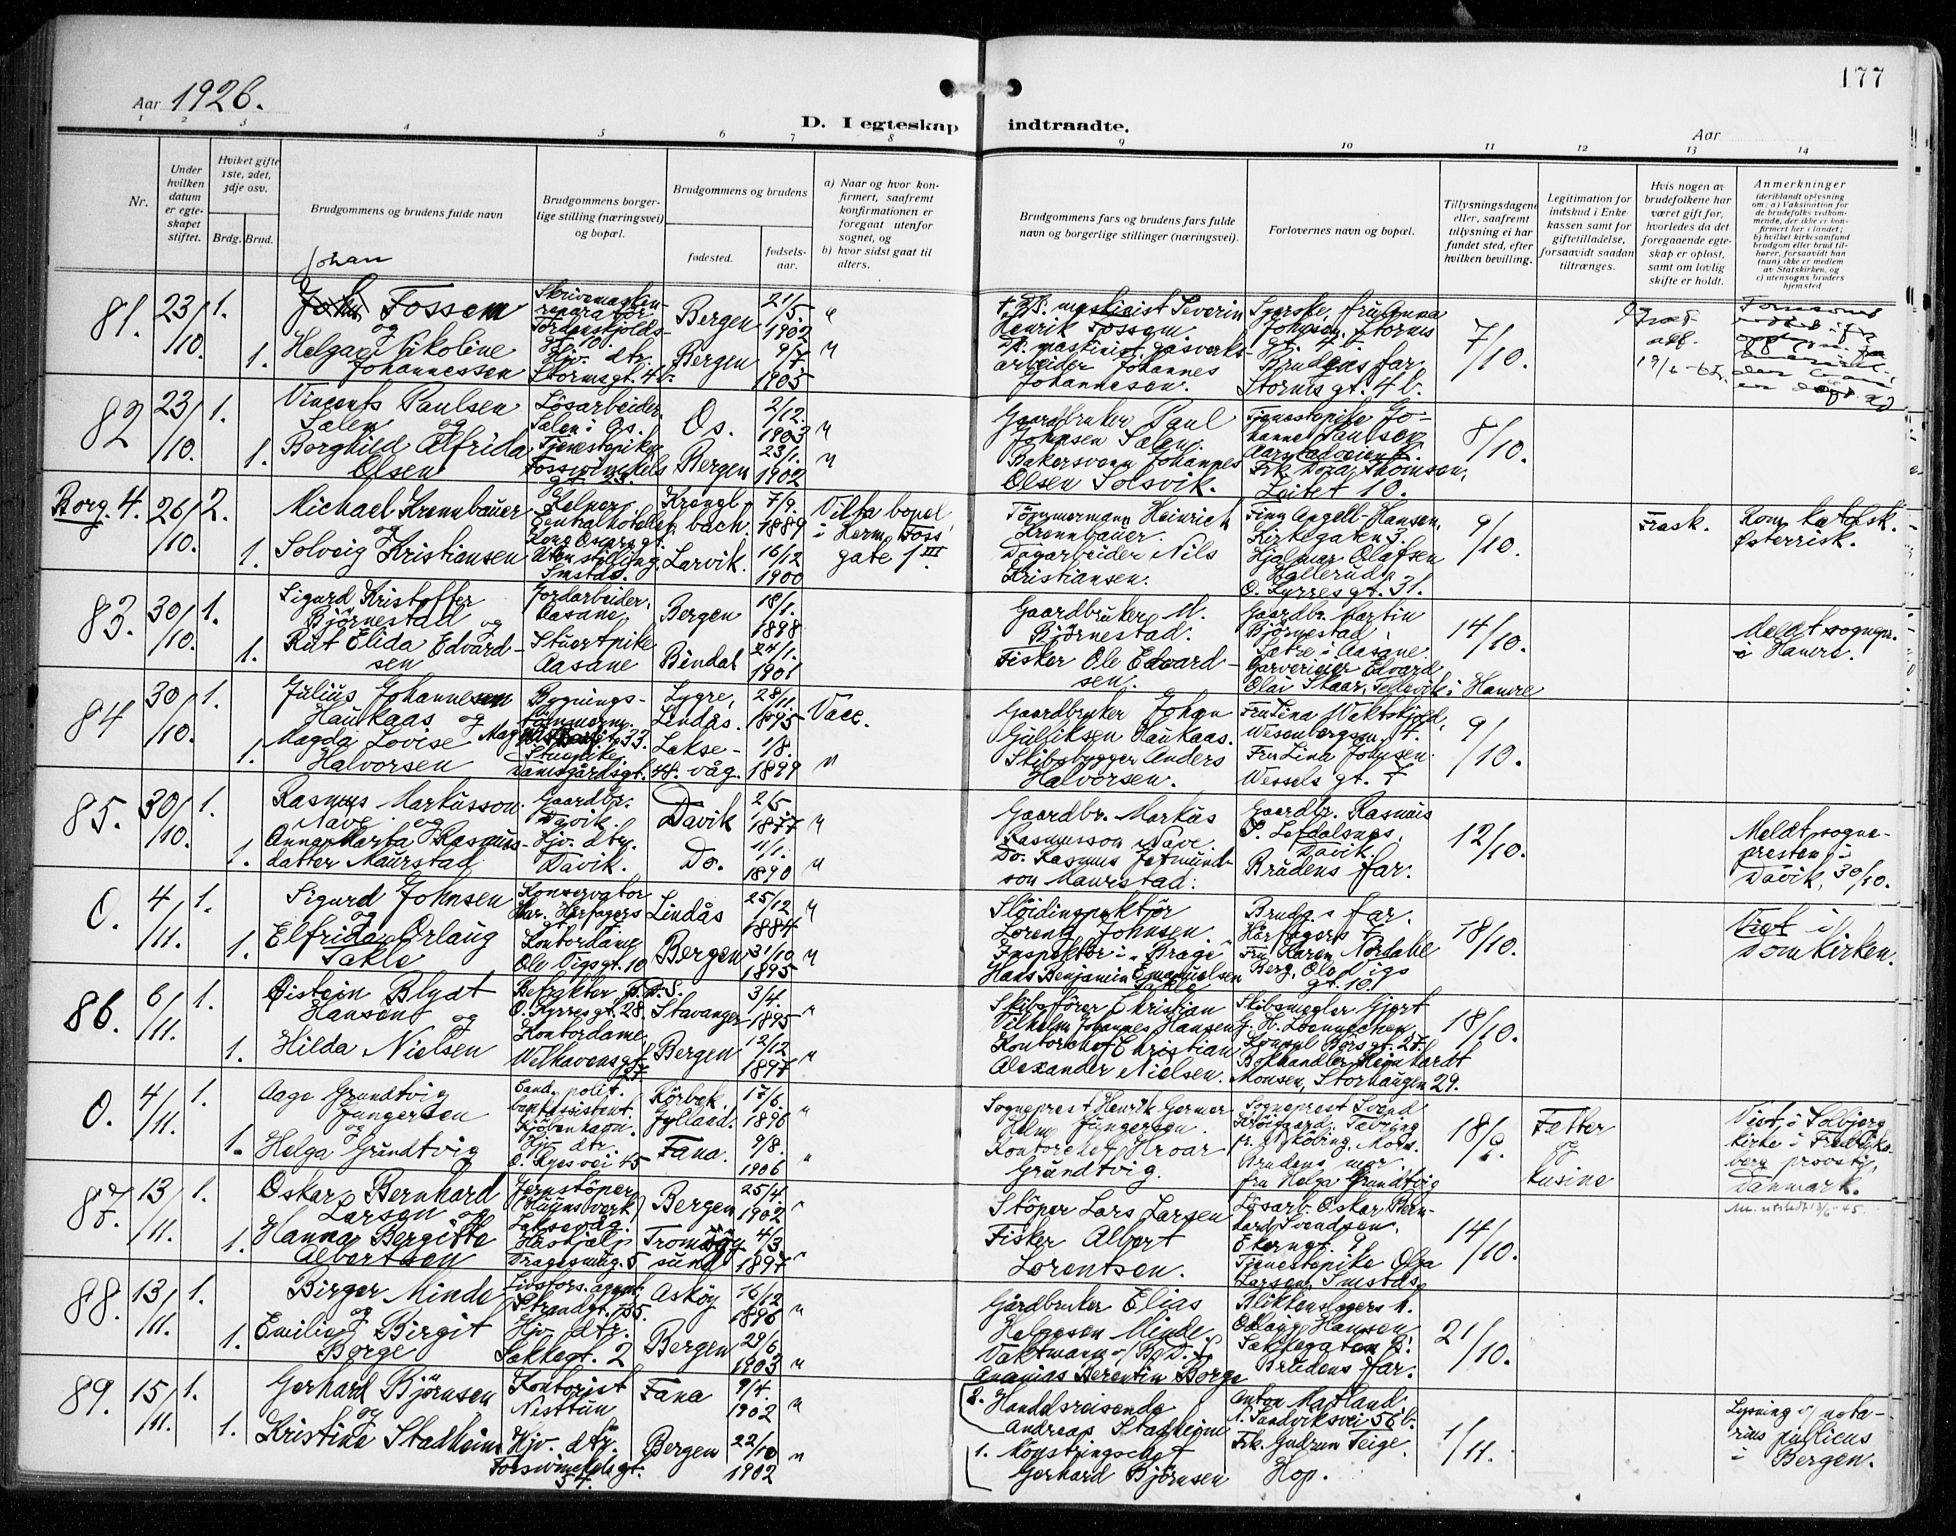 Aar 1926.
177
D. I egteskap indtraadte.
Aar
1 2 3 4 5 6 7 8 9 10 11 12 13 14
Nr.
Under hvilken datum er egteskapet stiftet.
Hviket gifte 1ste, 2det, 3dje osv.
Brdg. Brud.
Brudgommens og brudens fulde navn
Brudgommens borgerlige stilling (næringsvei) og bopæl.
Brudgommens og brudens
fødested.
fødselsaar.
a) Naar og hvor konfirmert, saafremt konfirmationen er foregaat utenfor sognet, og
b) hvor sidst gaat til alters.
Brudgommens fars og brudens fars fulde navn og borgerlige stillinger (næringsvei).
Forlovernes navn og bopæl.
Tillysningsdagene eller, saafremt tillysning ei har fundet sted, efter hvilken bevilling.
Legitimation for indskud i Enkekassen samt for giftetilladelse, forsaavidt saadan tiltrænges.
Hvis nogen av brudefolkene har været gift før, hvorledes da det foregaaende egteskap er opløst, samt om lovlig skifte er holdt.
Anmerkninger
81. 23/10. 1. 1.
Johan
Fossem og
Helga Nikoline Johannessen
Skrivemaskinreparatør
Tordenskjolds gt. 10.
Hjv. dtr.
Stormsgt. 4b.
Bergen 21/5. 1902 "
Bergen 9/7 1905 "
maskinist Severin Henrik Fossem.
maskinist, gasverksarbeider Johannes Johannesen.
Johnsen, Storms gt. 4b.
Brudens far
Stormsgt. 4b.
7/10.
82 23/10. 1. 1.
Vincents Paulsen Sælen og
Borghild Alfrida Olsen
Løsarbeider, Sælen i Os.
Tjenestepike
Fosswinckels gt. 23.
Os. 2/12 1903 "
Bergen 23/1. 1902 "
Gaardbruker Paul Johnsen Sælen.
Bakersvenn Johannes Olsen Solsvik.
Tjenestepike Johanne Paulsen
Frk. Dora Thomsen, Leitet 10.
8/10.
Borg. 4. 26/10. 2. 1.
Michael Krennbauer og
Solveig Kristiansen
Kelner, Centralhotellet
Kong Oscarsgt.
Uten stilling, Smstad.
Krengl bach. 7/9. 1889
Larvik. 16/12 1900
Vilta bopel i Herm. Foss gate 1 III
Tømmermann Heinrich Krennbauer.
Dagarbeider Nils Kristiansen.
Finn Angell-Hansen, Kirkegaten 3.
Hjalmar Olafsen Hallerud,
O. Kyrresgt. 31.
9/10.
Frask.
Rom. katolsk. Østerrisk.
83. 30/10. 1. 1.
Sigurd Kristoffer Bjørnestad og
Rut Elida Edvardsen
Jordarbeider, Aasane.
Stuertpike Aasane
Bergen 18/1. 1898
Bindal 24/1. 1901
Gaardbruker M. Bjørnestad.
Fisker Ole Edvardsen.
Gaardbr. Martin Bjørnestad, Sætre i Aasane.
Garverieier Edvard Olai Skaar, Tellevik i Hamre
14/10.
Meldt sognepr. i Hamre.
84 30/10. 1. 1.
Julius Johannesen Haukaas og
Magda Lovise Halvorsen
Bygningstømmerm.
33.
Stuepike, Damsgårdsgt. 48.
Lygre, Lindås. 28/11. 1895
Laksevåg. 1/8. 1899 "
Vacc.
Gaardbruker Johan Gulliksen Haukaas.
Skibsbygger Anders Halvorsen.
Fru Lina Vaktskjold, Wesenbergsm. 4.
Fru Lina Johnsen. Wessels gt. 7
9/10.
85. 30/10. 1. 1.
Rasmus Markusson Nave og
Anna Marta Rasmusdatter Maurstad
Gaardbr. Davik.
Hjv. dtr. Davik.
Davik 2/5. 1877 "
Do. 11/1. 1890 "
Gaardbr. Markus Rasmusson Nave.
Do. Rasmus Jetmundson Maurstad.
Gaardbr. Rasmus P. Lefdalsnes, Davik.
Brudens far.
12/10.
Meldt sognepresten i Davik, 30/10.
O. 4/11. 1. 1.
Sigurd Johnsen og
Elfrida Orlaug Takle
Konservator Har. Hårfagers gt.
Kontordame Ole Vigsgt. 10
Lindås 25/12 1884 "
Bergen 31/10 1895 "
Sløidinspektør Lorentz Johnsen.
Inspektør i "Brage" Hans Benjamin Emanuelsen Takle
Brudg.s far. Hårfagersgt. 7
Fru Karen Nordahl Berg, Ole Vigs gt. 10.
18/10.
Viet i Domkirken.
86. 6/11. 1. 1.
Øistein Blydt Hansen og
Hilda Nielsen
O. Kyrresgt. 28
Kontordame Welhavensgt. 27
Stavanger 3/4. 1895 "
Bergen 12/12 1897 "
Skibsfører Christian Vilhelm Johannes Hansen
Kontorchef Christian Alexander Nielsen.
Skibsmegler Gjert G. K. Loennechen,
Konsul Børsgt. 27.
Bokhandler Reinhardt Monsen, Storhaugen 29.
18/10.
O. 4/11. 1. 1.
Aage Grundtvig Jungersen og
Helga Grundtvig
Cand. polit. bankassistent. Kjøbenhavn.
Hjv. dtr. O. Ryesvei 45
Kørbek, Jylland. 17/6. 1896 "
Fana. 9/8. 1906 "
Sogneprest Henrik Germer Holm Jungersen.
Kontorchef Hroar Grundtvig.
Sogneprest Svend
Nykøbing, Mors.
Brudens mor, fru Helga Grundtvig
Fætter og kusine
Viet i Solbjerg kirke i Frederiksberg provsti, Danmark.
87. 13/11. 1. 1.
Oskar Bernhard Larsen og
Hanna Bergitte Albertsen
Jernstøper (Munins verk) Laksevåg.
Hushjælp Dragesmug. 5
Bergen 25/4. 1902 "
Tromøysund 4/3 1897 "
Støper Lars Larsen
Fisker Albert Lorentsen.
Løsarb. Oskar Bernhard Svendsen, Ekerngt. 9
Tjenestepike Olga Larsen, Smstds.
14/10.
88. 13/11. 1. 1.
Birger Minde og
Emilie Birgit Borge
Livsfors. agent, Strandgt. 185.
Hjv. dtr. Sækkegt. 2
Askøy 16/12 1896 "
Bergen 29/6 1903 "
Gårdbruker Elias Helgesen Minde.
Vaktmann v/ B. D. S. Ananias Berentin Borge
Blikkenslagers m. Odlaug Hansen, Sækkegaten 8.
Brudens far.
21/10.
89. 15/11. 1. 1.
Gerhard Bjørnsen og
Kristine Stadheim
Kontorist Nesttun
Hjv. dtr. Fosswinckelsgt. 54.
Fana 9/4. 1902 "
Bergen 22/10 1902 "
2. Handelsreisende Andreas Stadheim
1. Mønstringschef Gerhard Bjørnsen
Anton Matland N. Sandviksvei 56b.
Frk. Gudrun Teige. Hop.
1/11.
Lysning v/ notarius publicus i Bergen.